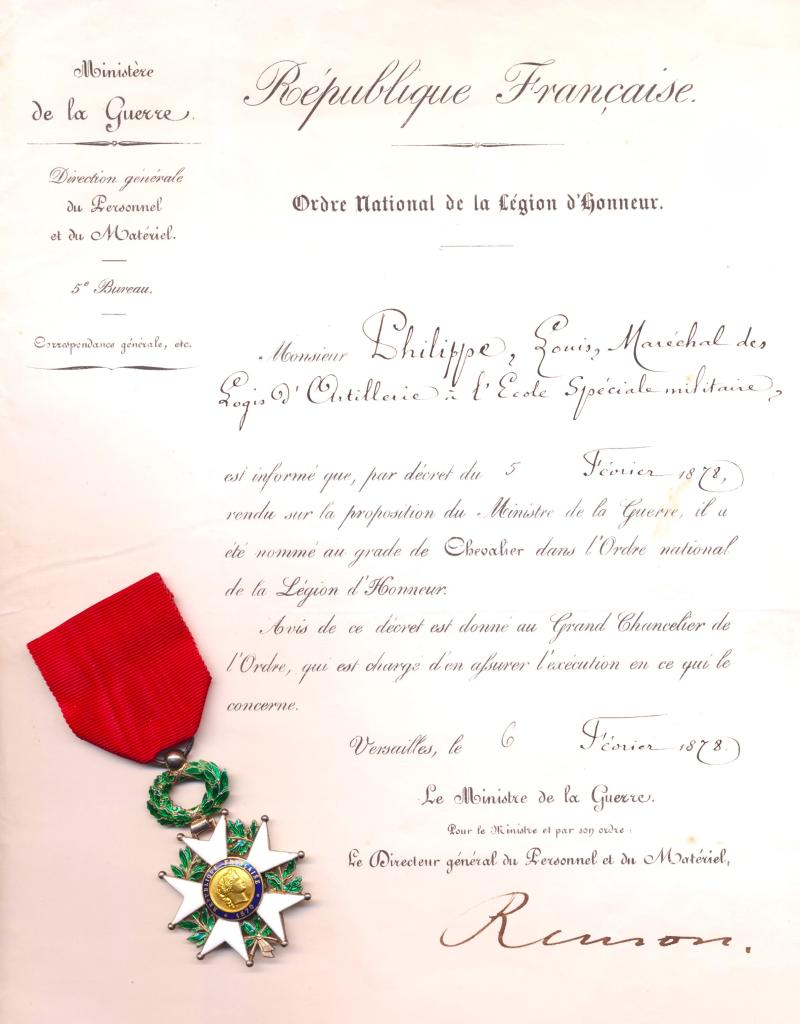 Ministère
de la Guerre.
Direction générale
du Personnel
et du Matériel.
5e Bureau.
Correspondance générale, etc.
République Française.
Ordre National de la Légion d'Honneur.
Monsieur Philippe, Louis, Maréchal des
Logis d'Artillerie à l'Ecole Spéciale militaire,
est informé que, par décret du 5 Février 1878,
rendu sur la proposition du Ministre de la Guerre, il a
été nommé au grade de Chevalier dans l'Ordre national
de la Légion d'Honneur.
Avis de ce décret est donné au Grand Chancelier de
l'Ordre, qui est chargé d'en assurer l'exécution en ce qui le
concerne.
Versailles, le 6 Février 1878.
Le Ministre de la Guerre.
Pour le Ministre et par son ordre :
Le Directeur général du Personnel et du Matériel,
REPUBLIQUE FRANÇAISE
1870